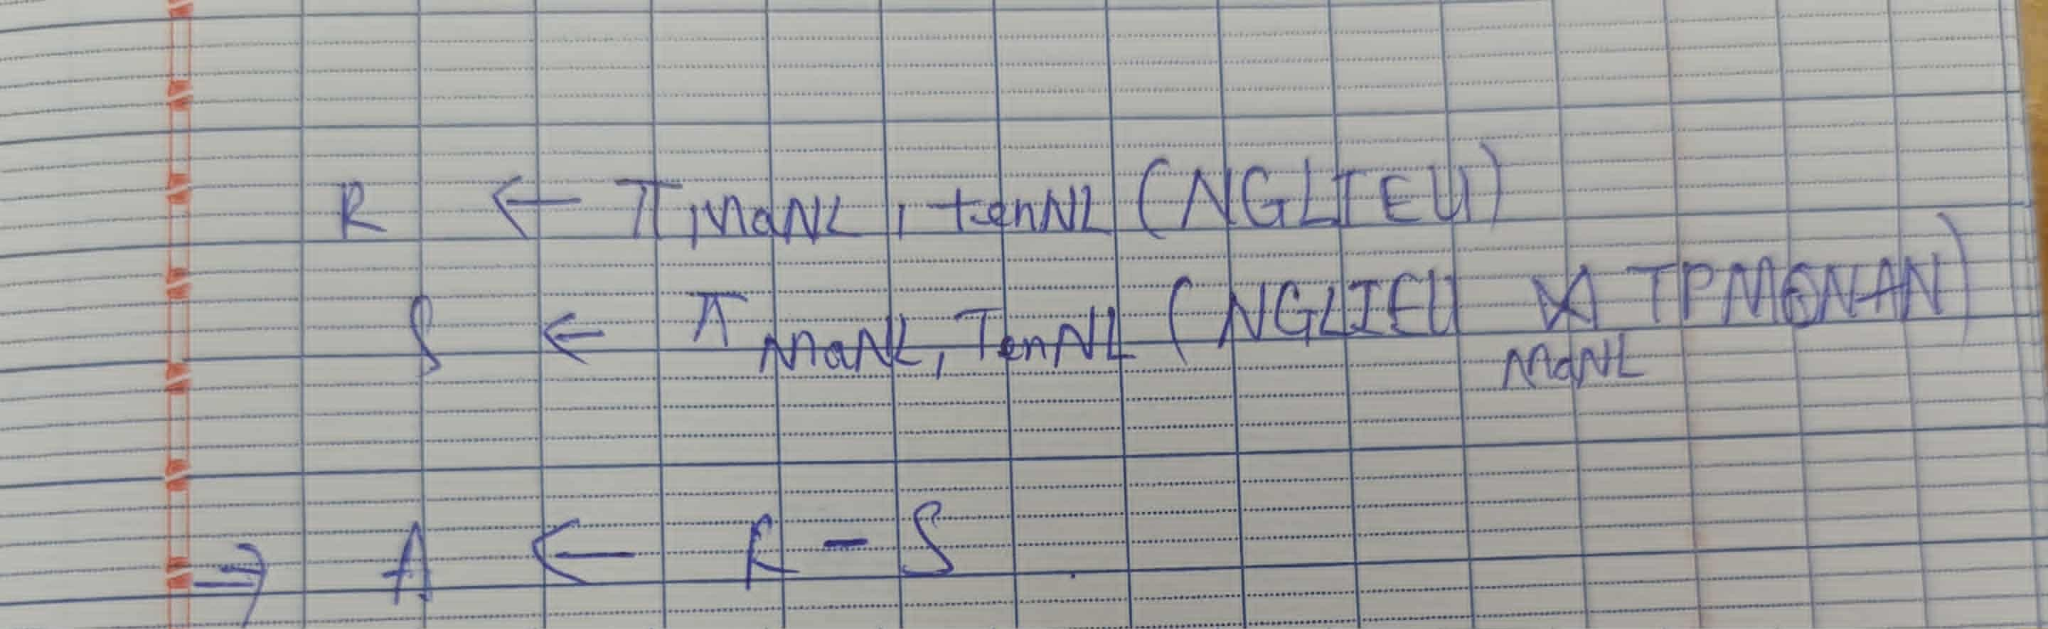 R ← π MaNL, tenNL (NGLIEU)
S ← π MaNL, TenNL (NGLIEU ⋈ TPMONAN)
MaNL
→ A ← R - S